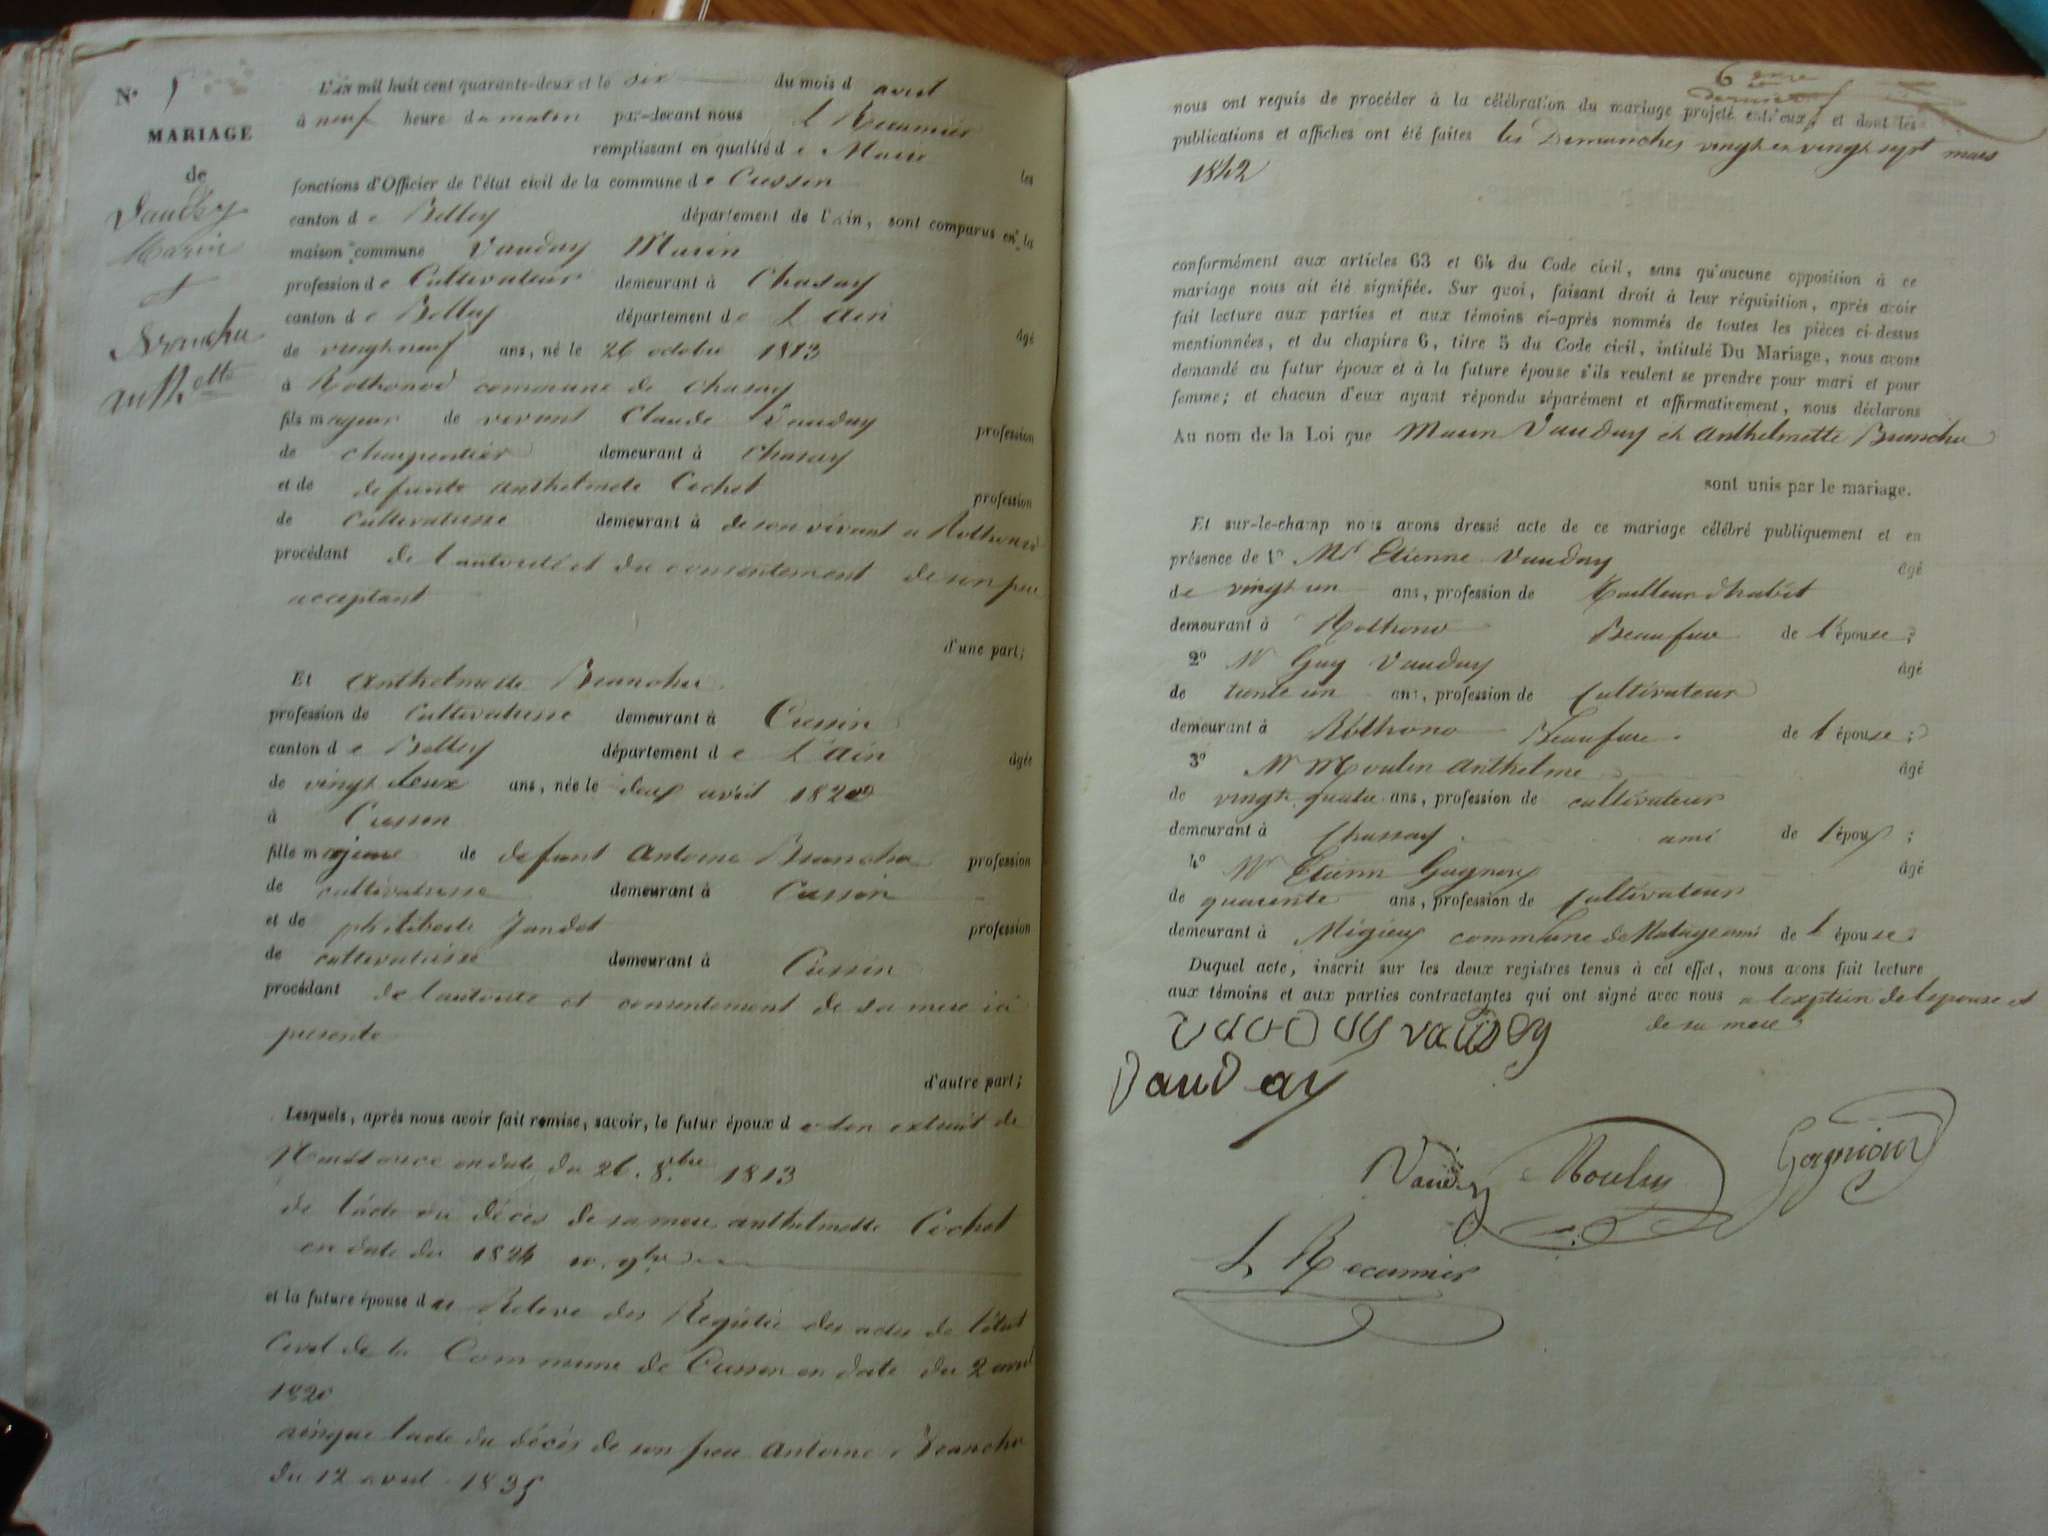 N° 1
MARIAGE
de
Vaudey
Marin
et
Branchu
anth.ette
L'an mil huit cent quarante-deux et le six du mois d avril
à neuf heure du matin par-devant nous L Recamier
remplissant en qualité d e Maire les
fonctions d'Officier de l'état civil de la commune d e Cressin
canton d e Belley département de l'Ain, sont comparus en la
maison commune Vauday Marin
profession de Cultivateur demeurant à Chasay
canton d e Belley département de L'ain âgé
de vingt neuf ans, né le 26 octobre 1813
à Rothonod commune de Chasay
fils majeur de vivant Claude Vauday profession
de charpentier demeurant à Chasay
et de defunte anthelmete Cochet profession
de Cultivatrisse demeurant à de son vivant a Rothonod
procédant de l'autorité et du consentement de son pere
acceptant
d'une part;
Et Anthelmette Branchu
profession de Cultivatrisse demeurant à Cressin
canton d e Belley département d e L'ain âgée
de vingt deux ans, née le deux avril 1820
à Cressin
fille majeure de defunt Antoine Branchu profession
de cultivatrisse demeurant à Cressin
et de philiberte Jandet profession
de cultivatrisse demeurant à Cressin
procédant de l'autorité et consentement de sa mere ici
presente
d'autre part;
Lesquels, après nous avoir fait remise, savoir, le futur époux d e son extrait de
Naissance en date du 26. 8.bre 1813
de l'acte du décès de sa mere anthelmette Cochet
en date du 1824 10. 9bre
et la future épouse d un Releve des Registre des actes de l'état
Civil de la Commune de Cressin en date du 2 avril
1820
ainsi que l'acte du décès de son pere Antoine Branchu
du 12 avril 1835
6 eme
dernier
nous ont requis de procéder à la célébration du mariage projeté entr'eux, et dont les
publications et affiches ont été faites les Dimanches vingt et vingt sept mars
1842
conformément aux articles 63 et 64 du Code civil, sans qu'aucune opposition à ce
mariage nous ait été signifiée. Sur quoi, faisant droit à leur réquisition, après avoir
fait lecture aux parties et aux témoins ci-après nommés de toutes les pièces ci-dessus
mentionnées, et du chapitre 6, titre 5 du Code civil, intitulé Du Mariage, nous avons
demandé au futur époux et à la future épouse s'ils veulent se prendre pour mari et pour
femme; et chacun d'eux ayant répondu séparément et affirmativement, nous déclarons
Au nom de la Loi que Marin Vauday et Anthelmette Branchu
sont unis par le mariage.
Et sur-le-champ nous avons dressé acte de ce mariage célébré publiquement et en
présence de 1° Mr Etienne Vauday âgé
de vingt un ans, profession de tailleur d'habit
demeurant à Rothono Beaufrere de l'épouse;
2° Mr Guy Vauday âgé
de trente un ans, profession de Cultivateur
demeurant à Rothono Beaufrere de l'épouse;
3° Mr Moulin Anthelme âgé
de vingt quatre ans, profession de cultivateur
demeurant à Chassay ami de l'époux;
4° Mr Etienn Gagneux âgé
de quarente ans, profession de Cultivateur
demeurant à Migieux commune de Natage ami de l'épouse.
Duquel acte, inscrit sur les deux registres tenus à cet effet, nous avons fait lecture
aux témoins et aux parties contractantes qui ont signé avec nous a l'exption de l'epouse et
de sa mere
vauday vaudey
Vauday
Vaudey Moulin
L Recamier